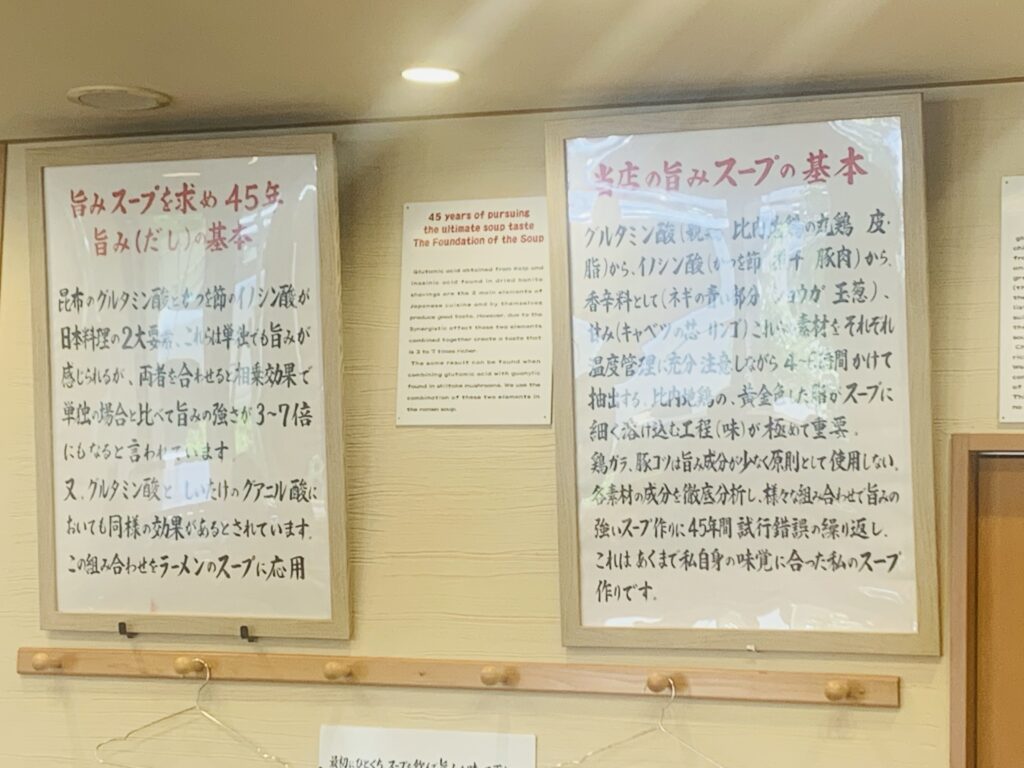 旨みスープを求め45年
旨み(だし)の基本
昆布のグルタミン酸とかつを節のイノシン酸が
日本料理の2大要素、これらは単独でも旨みが
感じられるが、両者を合わせると相乗効果で
単独の場合と比べて旨みの強さが3〜7倍
にもなると言われています
又、グルタミン酸としいたけのグアニル酸に
おいても同様の効果があるとされています。
この組み合わせをラーメンのスープに応用
45 years of pursuing
the ultimate soup taste
The Foundation of the Soup
Glutamic acid obtained from kelp and
inosinic acid found in dried bonito
shavings are the 2 main elements of
Japanese cuisine and by themselves
produce good taste. However, due to the
synergistic effect these two elements
combined together create a taste that
is 3 to 7 times richer.
The same result can be found when
combining glutamic acid with guanylic
found in shiitake mushrooms. We use the
combination of these two elements in
the ramen soup.
当店の旨みスープの基本
グルタミン酸( 比内地鶏の丸鶏 皮・
脂)から、イノシン酸(かつを節 干 豚肉)から、
香辛料として(ネギの青い部分 ショウガ 玉葱)、
甘み(キャベツの芯・リンゴ)これらの素材をそれぞれ
温度管理に充分注意しながら 時間かけて
抽出する。比内地鶏の、黄金色した脂がスープに
細く溶け込む工程(味)が極めて重要。
鶏ガラ、豚コツは旨み成分が少なく原則として使用しない。
各素材の成分を徹底分析し、様々な組み合わせで旨みの
強いスープ作りに45年間試行錯誤の繰り返し。
これはあくまで私自身の味覚に合った私のスープ
作りです。